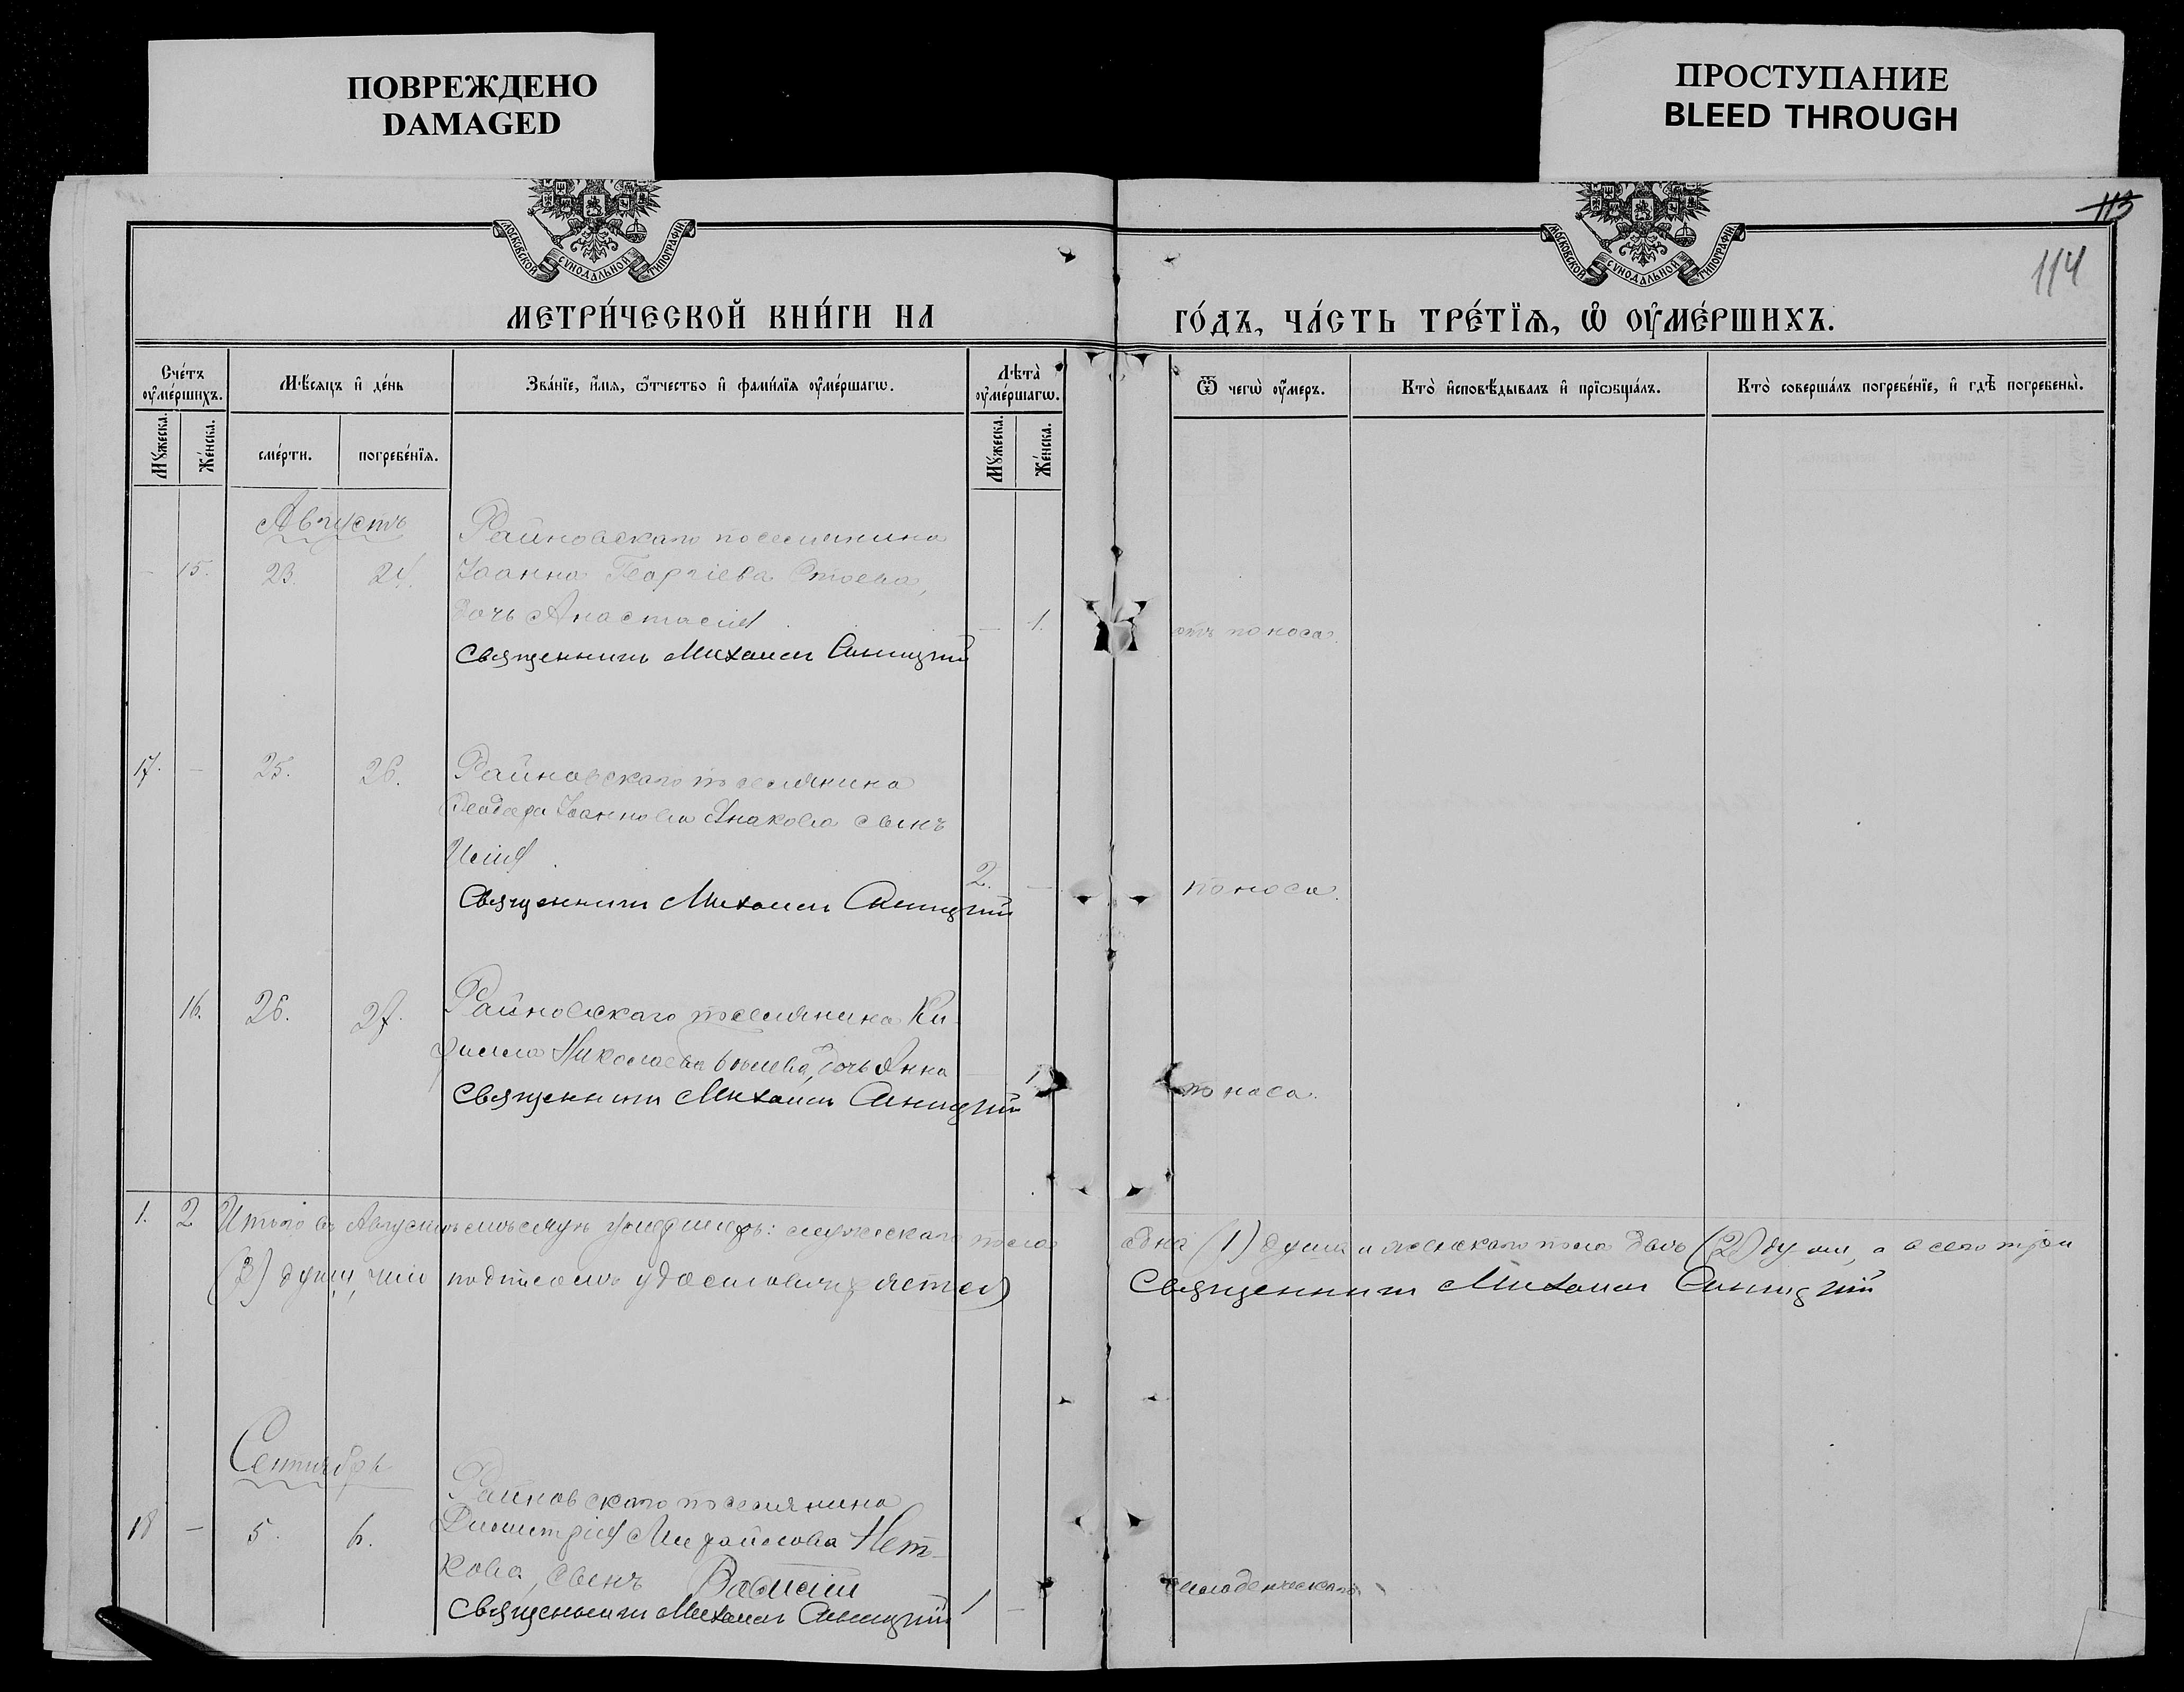 ПОВРЕЖДЕНО
DAMAGED
ПРОСТУПАНИЕ
BLEED THROUGH
МОСКОВСКОЙ СѴНОДАЛЬНОЙ ТИПОГРАФІИ
МОСКОВСКОЙ СѴНОДАЛЬНОЙ ТИПОГРАФІИ
113
114
МЕТРИ́ЧЕСКОЙ КНИ́ГИ НА
ГО́ДЪ, ЧА́СТЬ ТРЕ́ТЇѦ, Ѽ ОУ҆МЕ́РШИХЪ.
Сче́тъ оу҆ме́ршихъ.
Мꙋ́жеска.
Же́нска.
Мѣ́сѧцъ и҆ де́нь
сме́рти.
погребе́нїѧ.
Зва́нїе, и҆́мѧ, ѻ҆́тчество и҆ фами́лїѧ оу҆ме́ршагѡ.
Лѣ́та оу҆ме́ршагѡ.
Мꙋ́жеска.
Же́нска.
Ѿ чегѡ̀ оу҆́меръ.
Кто̀ и҆сповѣ́дывалъ и҆ прїѡбща́лъ.
Кто̀ соверша́лъ погребе́нїе, и҆ гдѣ̀ погребены̀.
Августъ
Райновскаго поселянина
— 15. 23. 24. Іоанна Георгіева Стоева,
дочь Анастасія. — 1. отъ поноса.
Священникъ Михаилъ Синицкій
17. — 25. 26. Райновскаго поселянина
Феодора Іоаннова сынъ
Илія. 2. — поноса.
Священникъ Михаилъ Синицкій
16. 26. 27. Райновскаго поселянина Ки-
рилла Николаева дочь Анна 1 поноса.
Священникъ Михаилъ Синицкій
1. 2 Итого въ Августѣ мѣсяцѣ умершихъ: мужескаго пола одна (1) душа и женскаго пола двѣ (2) души, а всего три
(3) души, чтò подписомъ удостовѣряется
Священникъ Михаилъ Синицкій
Сентябрь
Райновскаго поселянина
18 — 5. 6. Димитрія Нет-
кова, сынъ Василій
Священникъ Михаилъ Синицкій 1 — младенческой